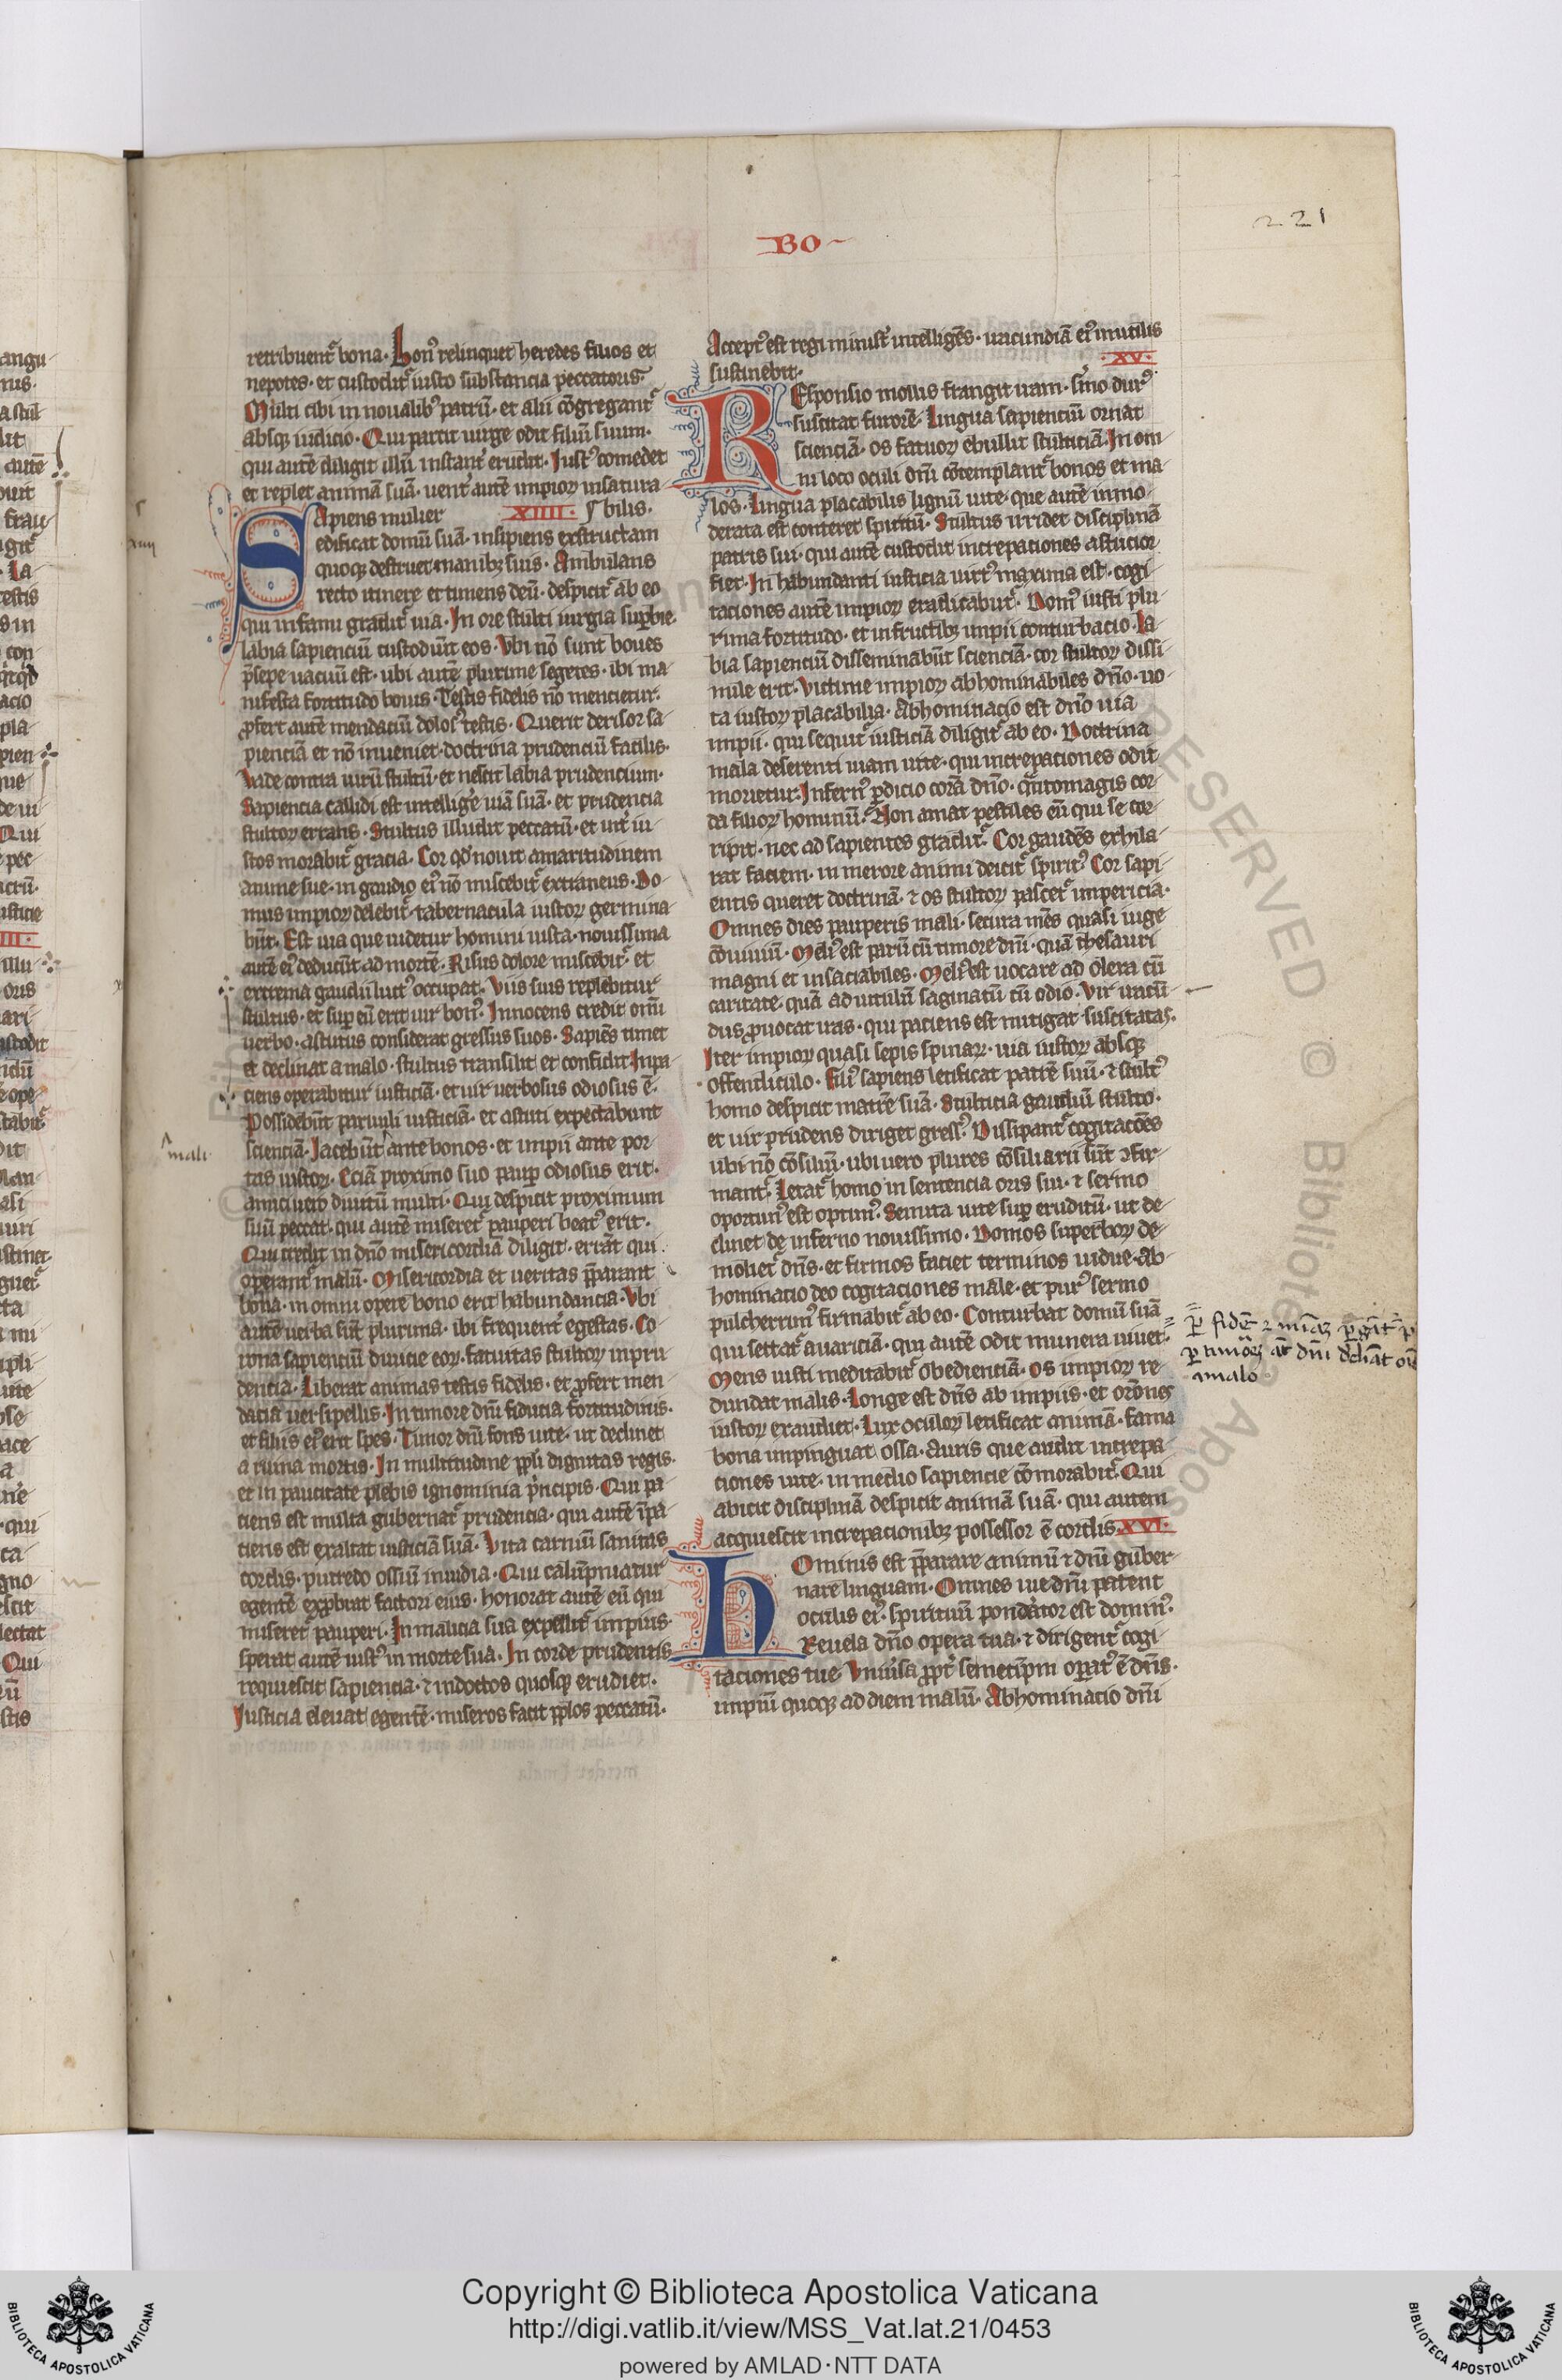 BO
221
retribuentᷣ bona. Bonꝰ relinquet heredes filios et
nepotes. et custoditᷣ iusto substancia peccatoris.
Multi cibi in noualibꝰ patrū. et alii cōgregantᷣ
absqꝫ iudicio. Qui parcit uirge odit filiū suum.
qui autē diligit illū instantᷣ erudit. Iustꝰ comedet
et replet animā suā. uentᷣ autē impioꝝ insatura
bilis.
XIIII.
Sapiens mulier
edificat domū suā. insipiens exstructam
quoqꝫ destruet manibꝫ suis. Ambulans
recto itinere et timens deū. despicitᷣ ab eo
qui infami graditᷣ uia. In ore stulti uirgia suꝑbie.
labia sapienciū custodiūt eos. Vbi nō sunt boues
p̄sepe uacuū est. ubi autē plurime segetes. ibi ma-
nifesta fortitudo bouis. Testis fidelis nō mencietur.
ꝓfert autē mendaciū dolosꝰ testis. Querit derisor sa-
pienciā et nō inueniet. doctrina prudenciū facilis.
Vade contra uirū stultū. et nescit labia prudencium.
Sapiencia callidi est intelligᷣe uiā suā. et prudencia
stultoꝝ errans. Stultus illudit peccatū. et intᷣ iu-
stos morabitᷣ gracia. Cor qd̄ nouit amaritudinem
anime sue. in gaudio eiꝰ nō miscebitᷣ extraneus. Do-
mus impioꝝ delebitᷣ. tabernacula iustoꝝ germina-
būt. Est uia que uidetur homini iusta. nouissima
autē eiꝰ deducūt ad mortē. Risus dolore miscebitᷣ. et
extrema gaudii luctꝰ occupat. Viis suis replebitur
stultus. et suꝑ eū erit uir bonꝰ. Innocens credit omī
uerbo. astutus considerat gressus suos. Sapiēs timet
et declinat a malo. stultus transilit et confidit. Inpa-
ciens operabitur iusticiā. et uir uerbosus odiosus ē.
Possidebūt paruuli iusticiā. et astuti expectabunt
scienciā. Iacebūt ante bonos. et impii ante por-
mali
tas iustoꝝ. Eciā proximo suo pauꝑ odiosus erit.
amici uero diuitū multi. Qui despicit proximum
suū peccat. qui autē miseretᷣ pauperi beatꝰ erit.
Qui credit in dn̄o misericordiā diligit. errāt qui
operantᷣ malū. Misericordia et ueritas p̄parant
bona. in omni opere bono erit habundancia. Vbi
autē uerba sūt plurima. ibi frequentᷣ egestas. Co-
rona sapienciū diuicie eoꝝ. fatuitas stultoꝝ inpru-
dencia. Liberat animas testis fidelis. et ꝓfert men-
dacia uersipellis. In timore dn̄i fiducia fortitudinis.
et filiis eiꝰ erit spes. Timor dn̄i fons uite. ut declinet
a ruina mortis. In multitudine ppl̄i dignitas regis.
et in paucitate plebis ignominia p̓ncipis. Qui pa-
ciens est multa gubernatᷣ prudencia. qui autē īpa-
ciens est exaltat iusticiā suā. Vita carniū sanitas
cordis. putredo ossiū inuidia. Qui calūpniatur
egentē exꝓbrat factori eius. honorat autē eū qui
miseretᷣ pauperi. In malicia sua expellitᷣ impius.
sperat autē iustꝰ in morte sua. In corde prudentis
requiescit sapiencia. ⁊ indoctos quosqꝫ erudiet.
Iusticia eleuat egentē. miseros facit pp̄los peccatū.
Acceptꝰ est regi ministᷣ intelligēs. iracundiā eiꝰ inutilis
sustinebit.
XV.
Responsio mollis frangit iram. sm̄o durꝰ
suscitat furorē. Lingua sapienciū ornat
scienciā. os fatuoꝝ ebullit stulticiā. In om-
ni loco oculi dn̄i cōtemplantᷣ bonos et ma-
los. Lingua placabilis lignū uite. que autē inmo-
derata est conteret spiritū. Stultus irridet disciplinā
patris sui. qui autē custodit increpaciones astucior
fiet. In habundanti iusticia uirtꝰ maxima est. cogi-
taciones autē impioꝝ eradicabūtᷣ. Domꝰ iusti plu-
rima fortitudo. et in fructibꝫ impii conturbacio. La-
bia sapienciū disseminabūt scienciā. cor stultoꝝ dissi-
mile erit. Victime impioꝝ abhominabiles dn̄o. uo-
ta iustoꝝ placabilia. Abhominacio est dn̄o uia
impii. qui sequitᷣ iusticiā diligitᷣ ab eo. Doctrina
mala deserenti uiam uite. qui increpaciones odit
morietur. Infernꝰ ꝑdicio corā dn̄o. q̄ntomagis cor-
da filioꝝ hominū. Non amat pestiles eū qui se cor-
ripit. nec ad sapientes graditᷣ. Cor gaudēs exhila-
rat faciem. in merore animi deicitᷣ spiritꝰ. Cor sapi-
entis queret doctrinā. ⁊ os stultoꝝ pascetᷣ impericia.
Omnes dies pauperis mali. secura mēs quasi iuge
cōuiuiū. Meliꝰ est parū cū timore dn̄i. quā thesauri
magni et insaciabiles. Meliꝰ est uocare ad olera cū
caritate. quā ad uitulū saginatū cū odio. Vir iracū-
dus ꝓuocat iras. qui paciens est mitigat suscitatas.
Iter impioꝝ quasi sepis spinaꝝ. uia iustoꝝ absqꝫ
offendiculo. Filiꝰ sapiens letificat patrē suū. ⁊ stultꝰ
homo despicit matrē suā. Stulticia gaudiū stulto.
et uir prudens diriget gressꝰ. Dissipantᷣ cogitacōes
ubi nō cōsiliū. ubi uero plures cōsiliarii sūt ꝯfir-
mantᷣ. Letatᷣ homo in sentencia oris sui. ⁊ sermo
oportunꝰ est optimꝰ. Semita uite suꝑ eruditū. ut de-
clinet de inferno nouissimo. Domos superboꝝ de-
molietᷣ dn̄s. et firmos faciet terminos uidue. Ab-
hominacio deo cogitaciones male. et purꝰ sermo
pulcherrimꝰ firmabitᷣ ab eo. Conturbat domū suā
qui sectatᷣ auariciā. qui autē odit munera uiuet.
Mens iusti meditabitᷣ obedienciā. os impioꝝ re-
dundat malis. Longe est dn̄s ab impiis. et orōnes
iustoꝝ exaudiet. Lux oculoꝝ letificat animā. fama
bona impinguat ossa. Auris que audit increpa-
ciones uite. in medio sapiencie cōmorabitᷣ. Qui
abicit disciplinā despicit animā suā. qui autem
acquiescit increpacionibꝫ possessor ē cordis. XVI.
Hominis est p̄parare animū ⁊ dn̄i guber-
nare linguam. Omnes uie dn̄i patent
oculis eiꝰ. spirituū pondᷣator est dominꝰ.
Reuela dn̄o opera tua. ⁊ dirigentᷣ cogi-
taciones tue. Vniūsa ꝓpt̓ semetip̄m operatꝰ ē dn̄s.
impiū quoqꝫ ad diem malū. Abhominacio dn̄i
amalo
Copyright © Biblioteca Apostolica Vaticana
http://digi.vatlib.it/view/MSS_Vat.lat.21/0453
powered by AMLAD · NTT DATA
BIBLIOTECA APOSTOLICA VATICANA
BIBLIOTECA APOSTOLICA VATICANA